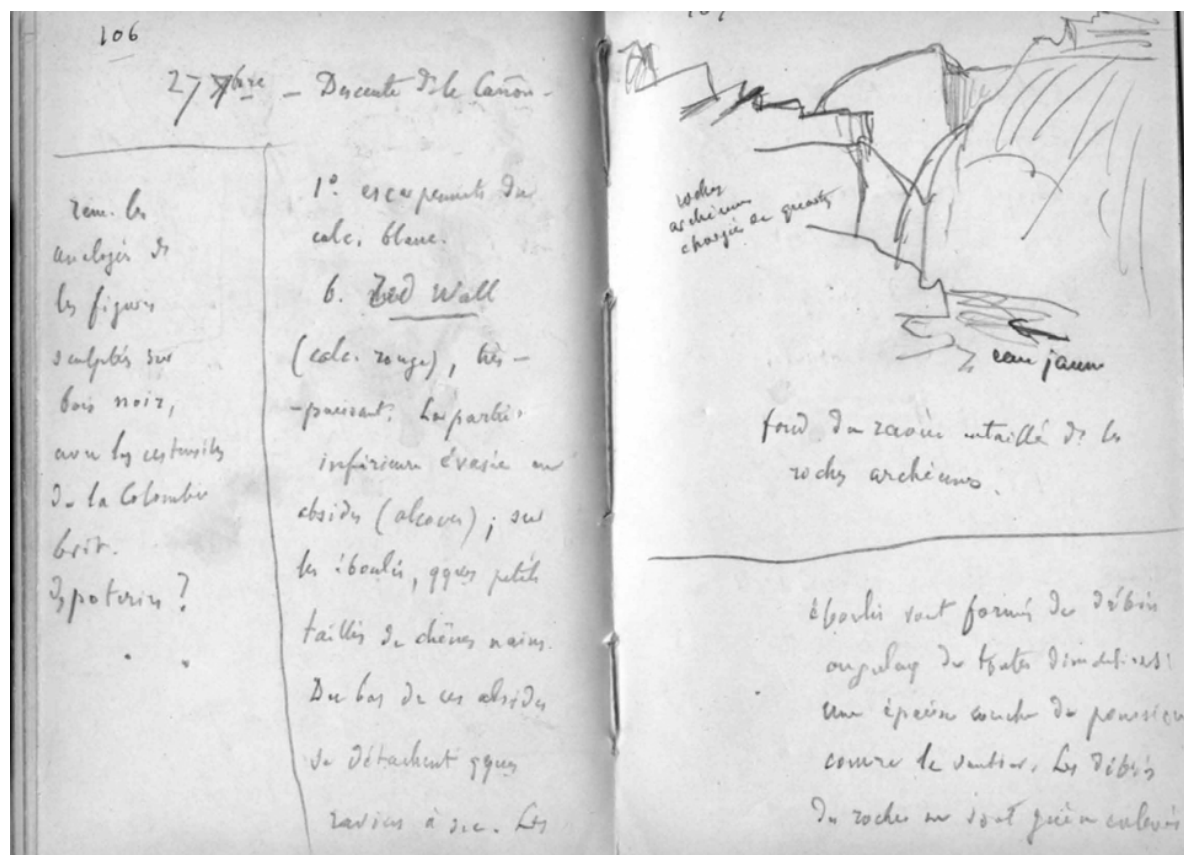 106
27 7bre _ Descente ds le Cañon _
rem. les
analogies ds
les figures
sculptées sur
bois noir,
avec les ustensiles
de la Colombie
brit.
& poteries ?
1º. escarpements du
calc. blanc.
6. Red Wall
(calc. rouge), très-
-puissant. La partie
inférieure évasée en
absides (alcoves) ; sur
les éboulis, qques petits
taillis de chênes nains.
Du bas de ces absides
se détachent qques
ravins à sec. Les
107
roches
archéennes
chargées de quartz
eau jaune
fond du ravin entaillé ds les
roches archéennes.
éboulis sont formés de débris
anguleux de toutes dimensions :
une épaisse couche de poussière
couvre le sentier. Les débris
de roches ne sont guère enlevés